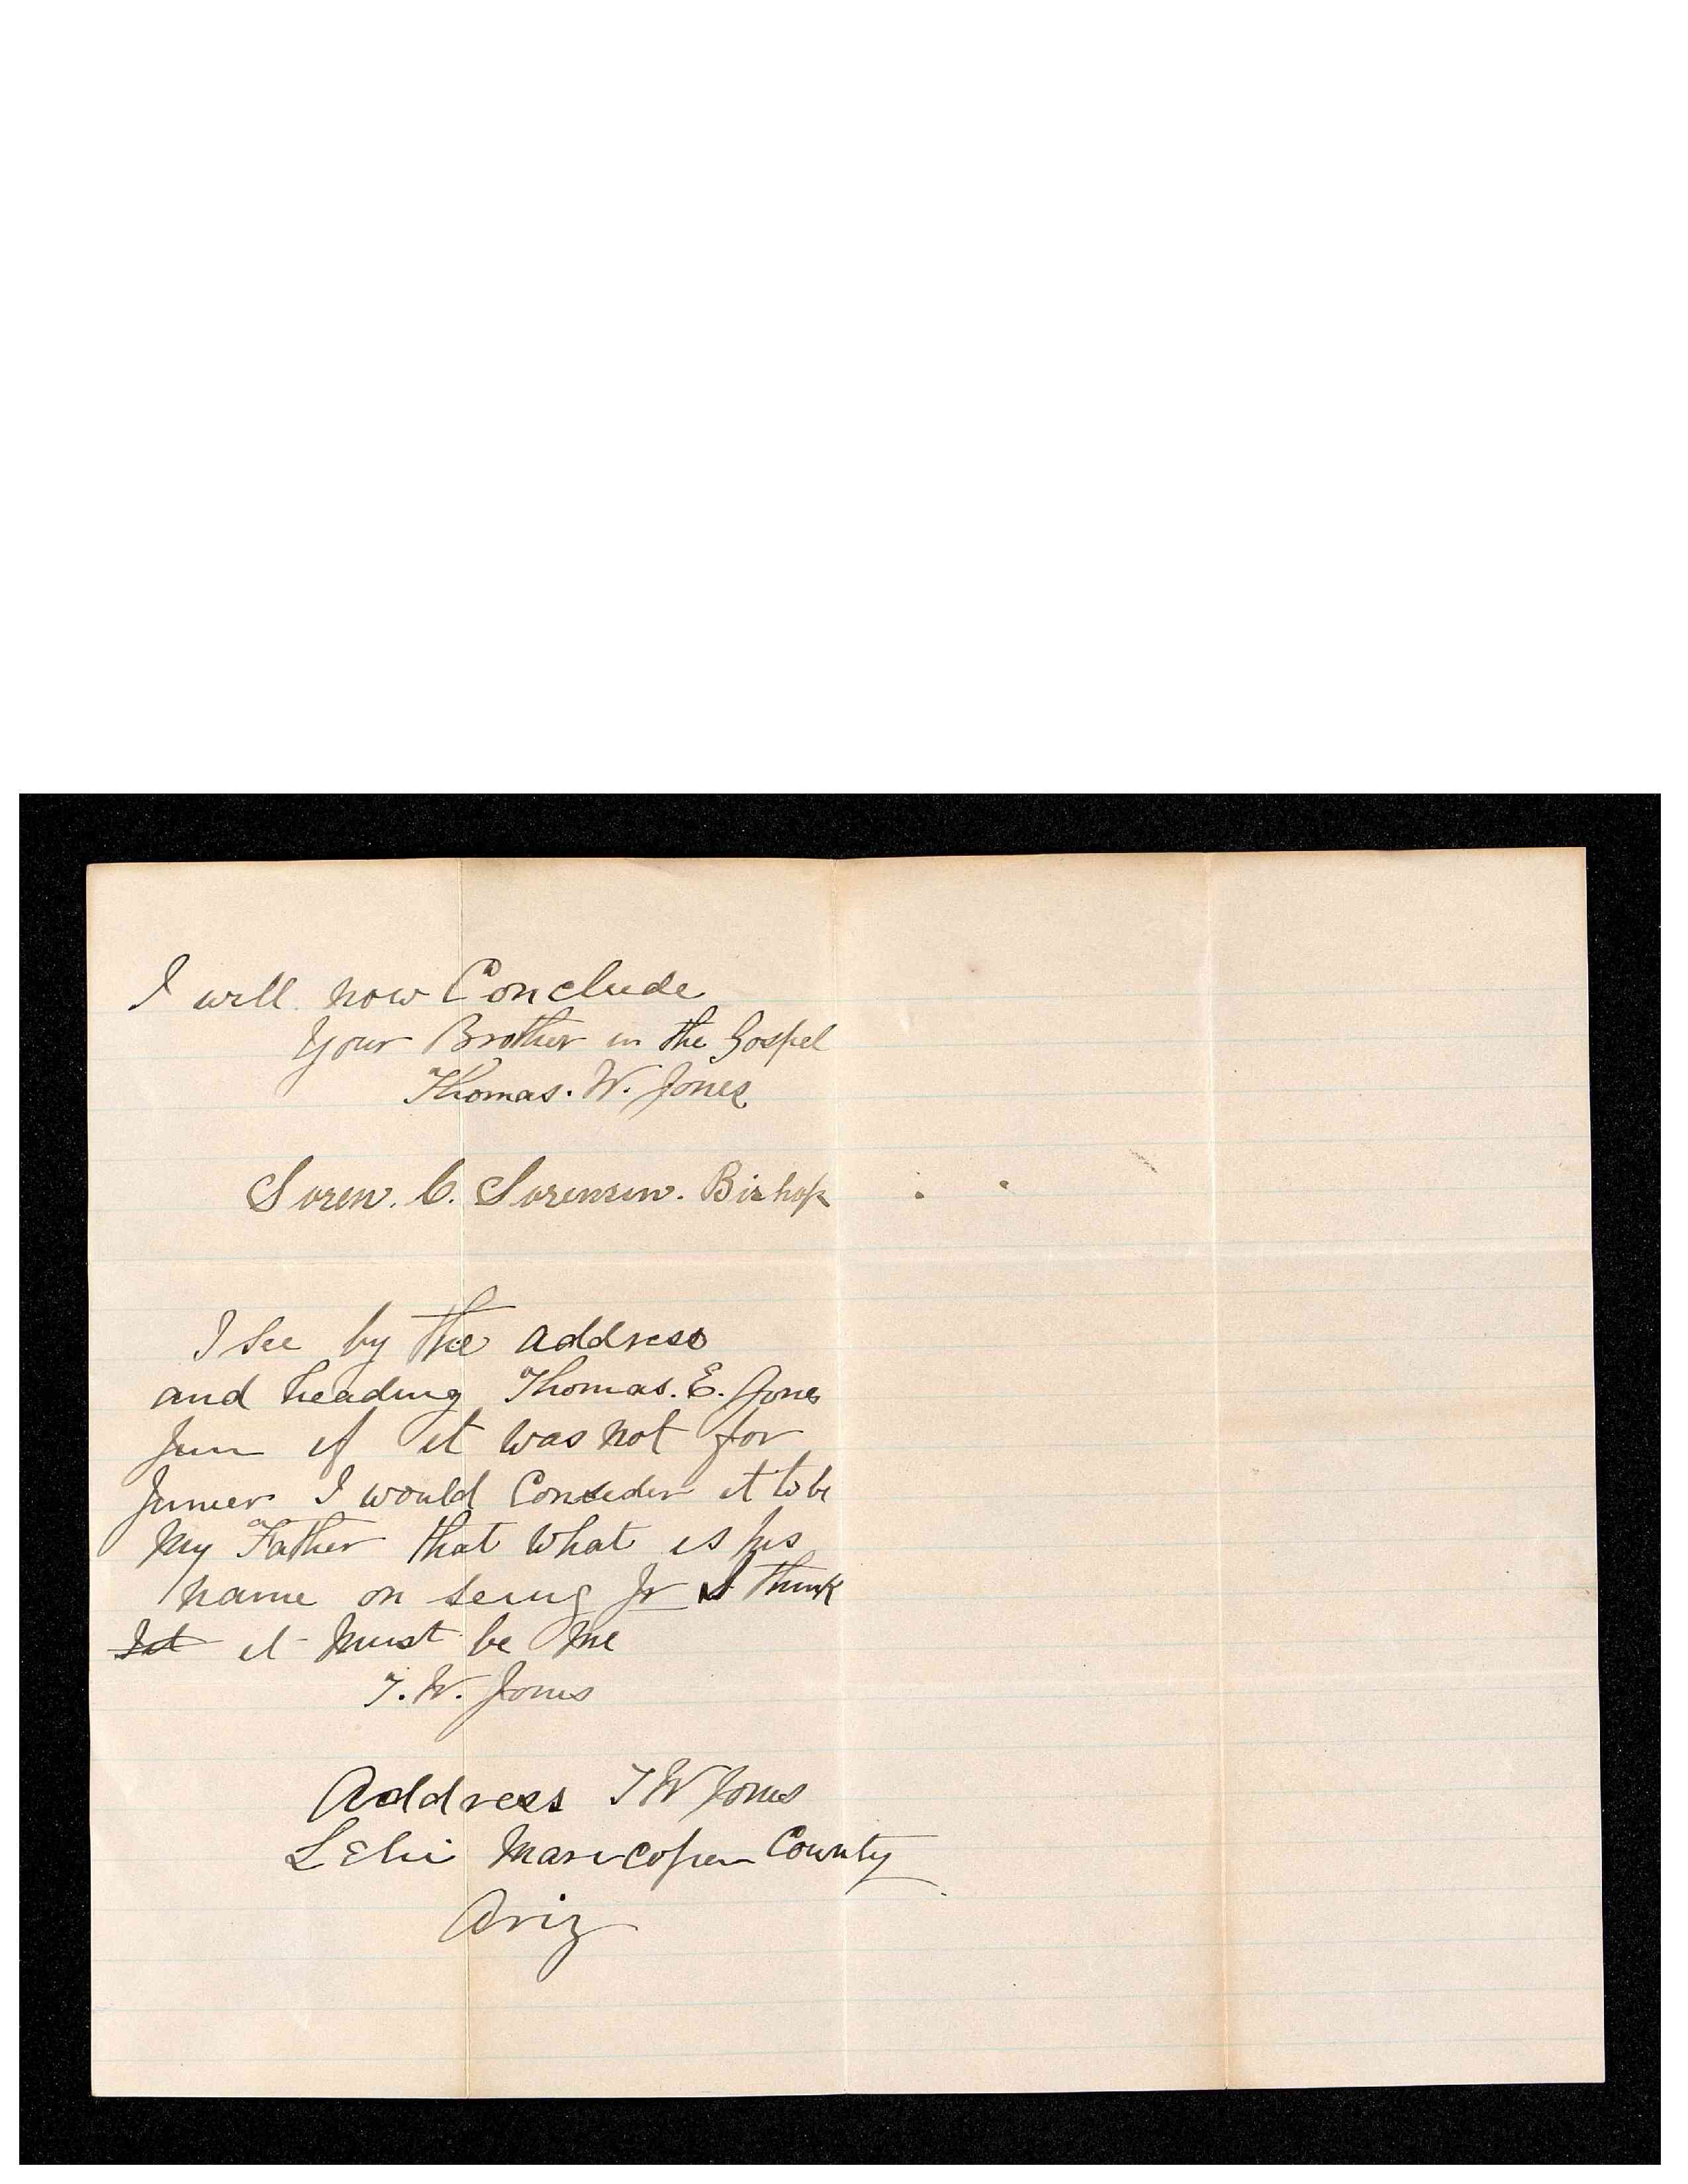 I will now Conclude
Your Brother in the Gospel
Thomas. W. Jones
Soren. C. Sorensen. Bishop
I See by the address
and heading Thomas. E. Jones
Jun if it was not for
Junier I would Consider it to be
My Father that What is his
name on seing Jr I think
it Must be Me
T. W. Jones
Address T W Jones
Lehi Maricopa County
Ariz